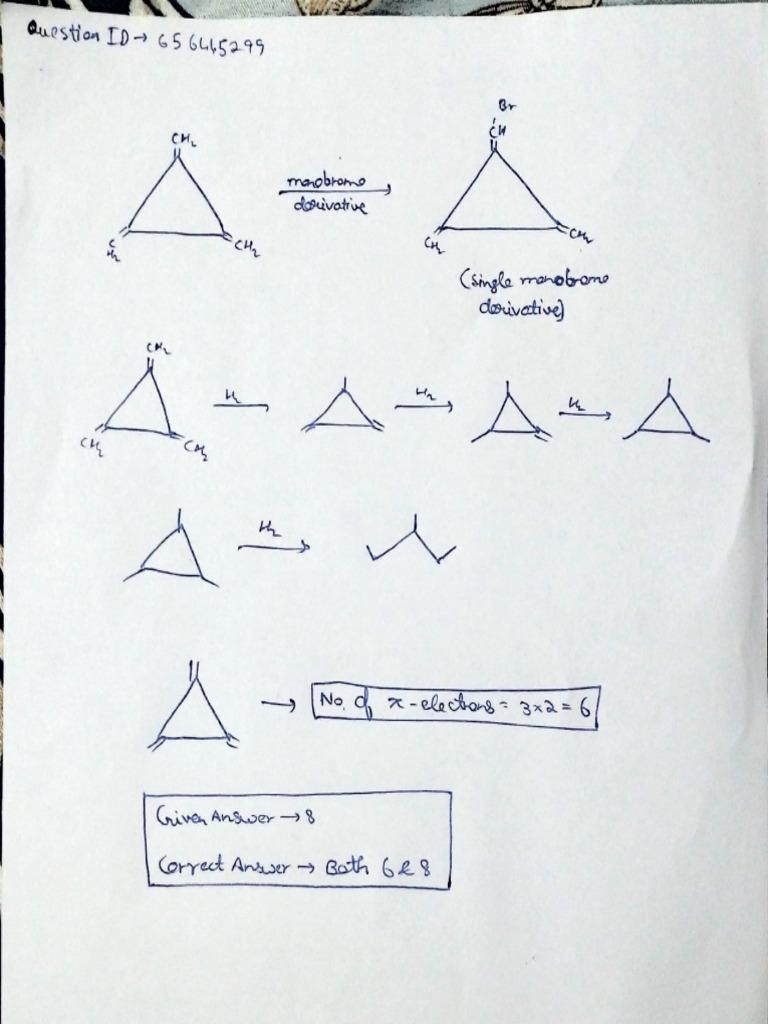 Question ID → 656445299
Br
CH₂
CH
monobromo
derivative
CH₂
CH₂
CH₂
CH₂
(single monobromo
derivative)
CH₂
H₂
H₂
H₂
CH₂
CH₂
H₂
→ No. of π-electrons = 3×2 = 6
Given Answer → 8
Correct Answer → Both 6 & 8